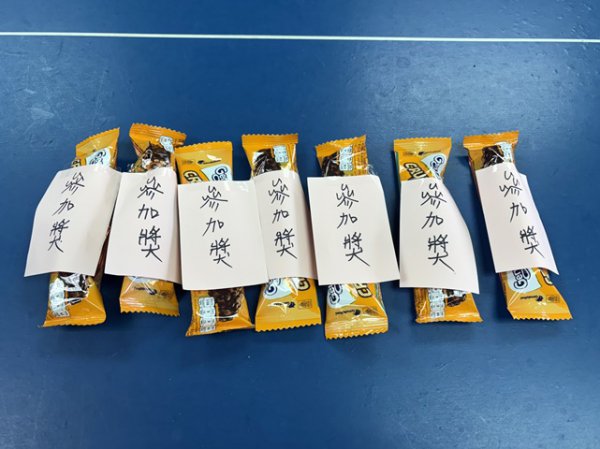 參加獎
參加獎
參加獎
參加獎
參加獎
參加獎
參加獎